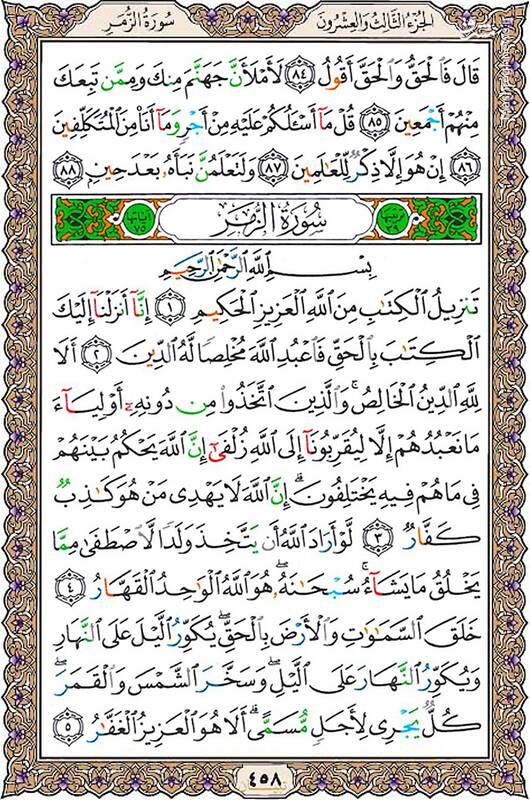 الجزء الثالث والعشرون
سورة الزمر
قَالَ فَٱلْحَقُّ وَٱلْحَقَّ أَقُولُ ٨٤ لَأَمْلَأَنَّ جَهَنَّمَ مِنكَ وَمِمَّن تَبِعَكَ
مِنْهُمْ أَجْمَعِينَ ٨٥ قُلْ مَآ أَسْـَٔلُكُمْ عَلَيْهِ مِنْ أَجْرٍ وَمَآ أَنَا۠ مِنَ ٱلْمُتَكَلِّفِينَ
٨٦ إِنْ هُوَ إِلَّا ذِكْرٌ لِّلْعَـٰلَمِينَ ٨٧ وَلَتَعْلَمُنَّ نَبَأَهُۥ بَعْدَ حِينٍۭ ٨٨
ترتيبها ٣٩
سُورَةُ الزُّمَر
آياتها ٧٥
بِسْمِ ٱللَّهِ ٱلرَّحْمَـٰنِ ٱلرَّحِيمِ
تَنزِيلُ ٱلْكِتَـٰبِ مِنَ ٱللَّهِ ٱلْعَزِيزِ ٱلْحَكِيمِ ١ إِنَّآ أَنزَلْنَآ إِلَيْكَ
ٱلْكِتَـٰبَ بِٱلْحَقِّ فَٱعْبُدِ ٱللَّهَ مُخْلِصًا لَّهُ ٱلدِّينَ ٢ أَلَا
لِلَّهِ ٱلدِّينُ ٱلْخَالِصُ ۚ وَٱلَّذِينَ ٱتَّخَذُوا۟ مِن دُونِهِۦٓ أَوْلِيَآءَ
مَا نَعْبُدُهُمْ إِلَّا لِيُقَرِّبُونَآ إِلَى ٱللَّهِ زُلْفَىٰٓ إِنَّ ٱللَّهَ يَحْكُمُ بَيْنَهُمْ
فِى مَا هُمْ فِيهِ يَخْتَلِفُونَ ۗ إِنَّ ٱللَّهَ لَا يَهْدِى مَنْ هُوَ كَـٰذِبٌ
كَفَّارٌ ٣ لَّوْ أَرَادَ ٱللَّهُ أَن يَتَّخِذَ وَلَدًا لَّٱصْطَفَىٰ مِمَّا
يَخْلُقُ مَا يَشَآءُ ۚ سُبْحَـٰنَهُۥ ۖ هُوَ ٱللَّهُ ٱلْوَٰحِدُ ٱلْقَهَّارُ ٤
خَلَقَ ٱلسَّمَـٰوَٰتِ وَٱلْأَرْضَ بِٱلْحَقِّ ۖ يُكَوِّرُ ٱلَّيْلَ عَلَى ٱلنَّهَارِ
وَيُكَوِّرُ ٱلنَّهَارَ عَلَى ٱلَّيْلِ ۖ وَسَخَّرَ ٱلشَّمْسَ وَٱلْقَمَرَ ۖ
كُلٌّ يَجْرِى لِأَجَلٍ مُّسَمًّى ۗ أَلَا هُوَ ٱلْعَزِيزُ ٱلْغَفَّـٰرُ ٥
٤٥٨